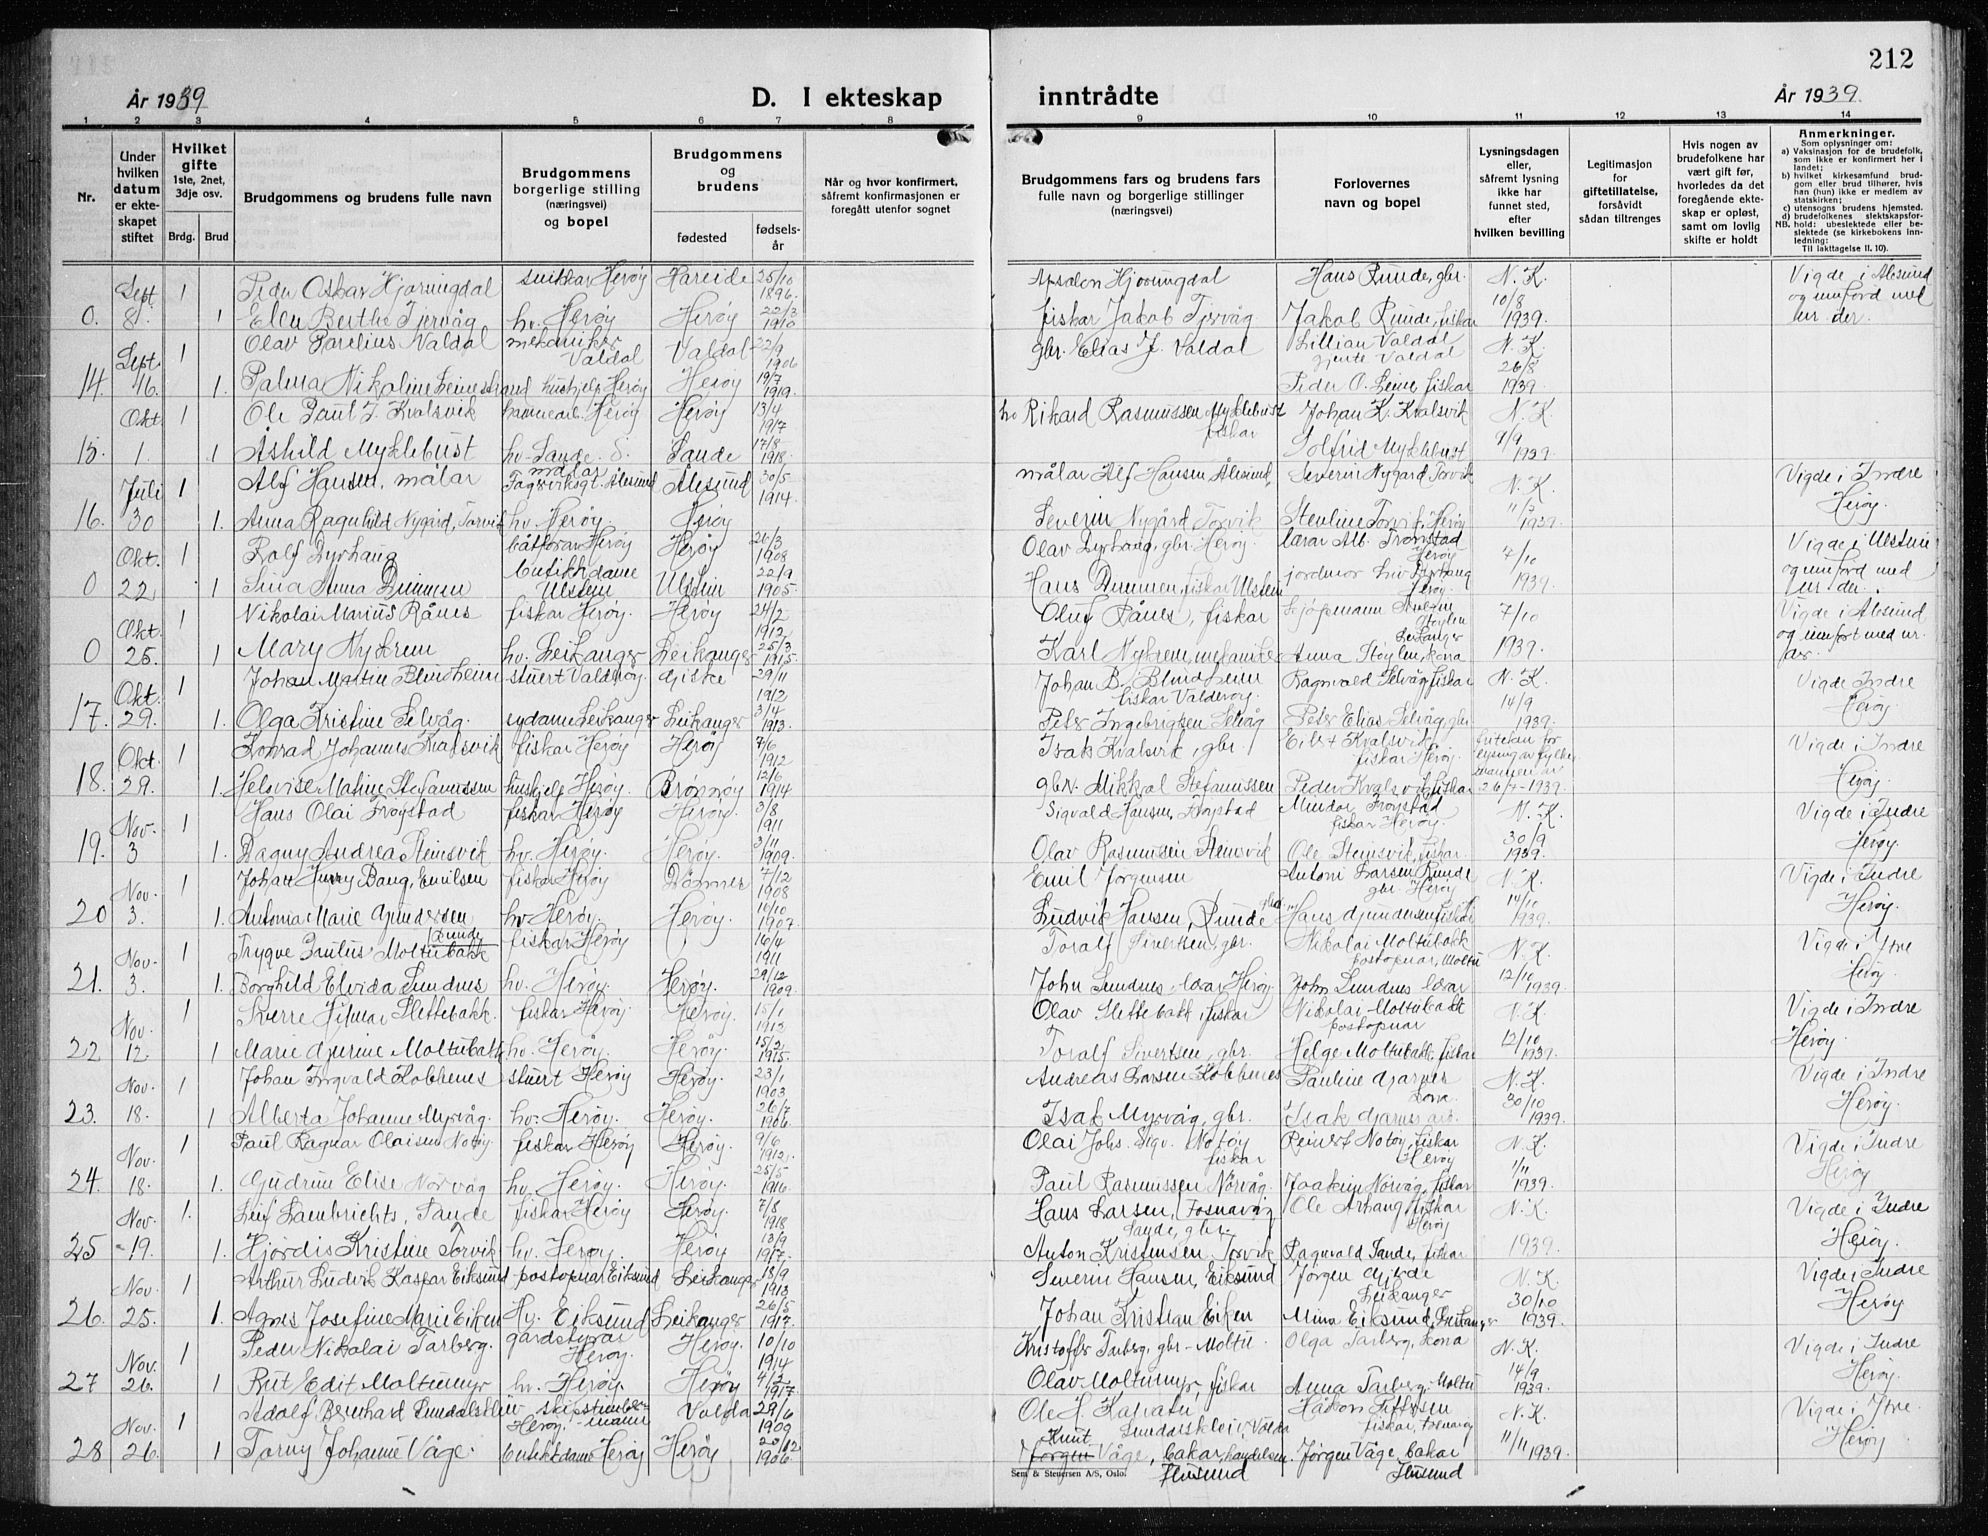 212
År 1939
D. I ekteskap
inntrådte
År 1939.
1 2 3 4 5 6 7 8
9 10 11 12 13 14
Nr.
Under hvilken datum er ekteskapet stiftet
Hvilket gifte
1ste, 2net, 3dje osv.
Brdg. Brud
Brudgommens og brudens fulle navn
Brudgommens borgerlige stilling (næringsvei) og bopel
Brudgommens og brudens
fødested
fødselsår
Når og hvor konfirmert, såfremt konfirmasjonen er foregått utenfor sognet
Brudgommens fars og brudens fars fulle navn og borgerlige stillinger (næringsvei)
Forlovernes navn og bopel
Lysningsdagen eller, såfremt lysning ikke har funnet sted, efter hvilken bevilling
Legitimasjon for giftetillatelse, forsåvidt sådan tiltrenges
Hvis nogen av brudefolkene har vært gift før, hvorledes da det foregående ekteskap er opløst, samt om lovlig skifte er holdt
Anmerkninger.
Som oplysninger om:
a) Vaksinasjon for de brudefolk, som ikke er konfirmert her i landet;
b) hvilket kirkesamfund brudgom eller brud tilhører, hvis han (hun) ikke er medlem av statskirken;
c) utensogns brudens hjemsted.
d) brudefolkenes slektskapsforhold: ubeslektede eller beslektede (se kirkebokens innledning:
NB.
Til iakttagelse II. 10).
Sept 1 Peder Oskar Hjørungdal snikkar Herøy Hareide 25/10 1896. Apsalon Hjørungdal Hans Runde, gbr. N. K. Vigde i Ålesund
0. 8. 1 Elen Berthe Tjervåg hv. Herøy Herøy 22/3 1910 fiskar Jakob Tjervåg Jakob Runde, fiskar 10/8 1939. og innførd med ur. der.
Sept. 1 Olav Parelius Valdal mekaniker Valdal Valdal 22/9 1906 gbr. Elias J. Valdal Lillian Valdal gjente Valdal N. K.
14 16. 1. Palma Nikoline Leinestrand hushjelp Herøy Herøy 19/7 1919. Peder O. Leine fiskar 26/8 1939
Okt 1 Ole Paul J. Kvalsvik hamnearb. Herøy Herøy 13/4 1917 hv Rikard Rasmussen Myklebust fiskar Johan K. Kvalsvik N. K.
15. 1. 1 Åshild Myklebust hv. Sande. S. Sande 17/8 1918. Solfrid Myklebust 9/9 1939
Juli 1 Alf Hansen, målar målar Fagerviksgt. Ålesund Ålesund 30/5 1914 målar Alf Hansen Ålesund, Severin Nygård Torvik N. K. Vigde i Indre
16. 30 1. Anna Ragnhild Nygård, Torvik hv. Herøy Herøy Severin Nygård Torvik Stenline Torvik, Herøy 11/7 1939. Herøy.
Okt. 1 Rolf Dyrhaug båtførar Herøy Herøy 26/3 1908 Olav Dyrhaug, gbr. Herøy. lærar Alb. Tronstad Herøy 4/10 Vigde i Ulstein
0 22 1 Anna Dimmen butikkdame Ulstein Ulstein 22/9 1905. Hans Dimmen, fiskar Ulstein jordmor Liv Dyrhaug Herøy. 1939. og innførd med ur. der.
Okt. 1 Nikolai Marius Rånes fiskar Herøy. Herøy 24/2 1912 Oluf Rånes, fiskar Støylen Leikanger 7/10 Vigde i Ålesund
0 25. 1 Mary Nykrem hv. Leikanger Leikanger 25/3 1915. Karl Nykrem, Anna Støylen, kona 1939. og innført med ur. der.
Okt. 1 Johan Martin Blindheim stuert Valderøy. Giske 29/11 1912 Johan B. Blindheim fiskar Valderøy. Ragnvald Selvåg, fiskar N. K. Vigde Indre
17. 29. 1. Olga Kristine Selvåg. sydame Leikanger Leikanger 3/4 1913. Peter Ingebrigtsen Selvåg Peter Elias Selvåg, gbr 14/9 1939. Herøy.
Okt. 1 Konrad Johannes Kvalsvik fiskar Herøy Herøy 7/6 1912 Isak Kvalsvik, gbr. Eilert Kvalsvik, fiskar Herøy. fritekan for lysing av fylkesmannen av Vigde i Indre
18. 29. 1. Helvise Maline Stefanussen hushjelp Herøy. Brønnøy 12/6 1914 gbr. Mikkal Stefanussen Peder Kvalsvik, fiskar 26/7-1939. Herøy.
Nov. 1 Hans Olai Frøystad fiskar Herøy Herøy. 3/8 1911 Sigvald Hansen, Frøystad Mindor Frøystad fiskar Herøy. N. K. Vigde i Indre
19. 3 1. Dagny Andrea Stemsvik hv. Herøy. Herøy. 3/11 1909. Olav Rasmussen Stemsvik Ole Stemsvik, fiskar. 30/9 1939. Herøy.
Nov. 1 Johan Harry Bang, Emilsen fiskar Herøy Dønnes 7/12 1908 Emil Jørgensen Antoni Larsen Runde gbr. Herøy N. K. Vigde i Indre
20 3. 1. Antonia Marie Gjundersen hv Herøy. Herøy. 10/10 1907. Ludvik Hansen, Runde Hans Gjundersen fiskar 14/10 1939. Herøy.
Nov. 1 Trygve Paulus Moltubakk fiskar Herøy 16/4 1911 Toralf Sivertsen, gbr. Nikolai Moltubakk postopnar, Moltu N. K. Vigde i Ytre
21. 3. 1. Borghild Elvida Sundnes hv. Herøy. Herøy. 29/12 1909. John Sundnes lærar Herøy John Sundnes lærar 12/10 1939. Herøy.
Nov. 1 Sverre Hilmar Slettebakk. fiskar Herøy. Herøy. 15/1 1912 Olav Slettebakk, fiskar Nikolai Moltubakk postopnar N. K. Vigde i Indre
22 12 1 Marie Gjurine Moltubakk hv. Herøy. Herøy. 15/2 1915. Toralf Sivertsen, gbr. Helge Moltubakk, fiskar 12/10 1939. Herøy.
Nov. 1 Johan Ingvald Kobbenes stuert Herøy Herøy. 23/1 1903 Andreas Larsen Kobbenes Pauline Gjørnes kona. N. K. Vigde i Indre
23. 18. 1 Alberta Johanne Myrvåg. hv. Herøy. Herøy. 26/7 1906. Isak Myrvåg, gbr. 30/10 1939. Herøy.
Nov. 1 Paul Ragnar Olaisen Notøy. fiskar Herøy Herøy. 9/6 1912. Olai Johs. Sigv. Notøy fiskar Reinert Notøy, fiskar Herøy N. K. Vigde i Indre
24. 18. 1. Gudrun Elise Nørvåg hv. Herøy Herøy. 25/5 1916. Paul Rasmussen Nørvåg. Joakim Nørvåg, fiskar 1/11 1939. Herøy
Nov. 1. Leif Lambrichts, Sande fiskar Herøy Herøy. 7/8 1918 Hans Larsen, Fosnavåg Sande, gbr. Ole Arhaug, fiskar Herøy N. K. Vigde i Indre
25 19. 1. Hjørdis Kristine Torvik hv. Herøy. Herøy 13/9 1917. Anton Kristensen Torvik Ragnvald Sande, fiskar 1939. Herøy.
Nov. 1 Arthur Ludvik Kaspar Eiksund postopnar Eiksund Leikanger 18/9 1913 Severin Hansen, Eiksund Jørgen Gjerde Leikanger N. K. Vigde i Indre
26. 25. 1. Agnes Josefine Marie Eiken Hv. Eiksund Leikanger 26/5 1917. Johan Kristian Eiken Mina Eiksund, Leikanger 30/10 1939. Herøy.
Nov. 1 Peder Nikolai Tarberg. gardstyrar Herøy. Herøy. 10/10 1914 Kristoffer Tarberg, gbr - Moltu Olga Tarberg, kona N. K. Vigde i Indre
27 26. 1 Rut Edit Moltumyr hv. Herøy. Herøy 4/2 1917. Olav Moltumyr, fiskar Anna Tarberg. Moltu 14/9 1939. Herøy.
Nov. 1 Adolf Bernhard Sundalskleiv skipstømbermann Herøy. Volda 29/6 1909 Ole H. Sundalskleiv, Volda Håkon Pettersen fiskar, Fosnavåg N. K. Vigde i Ytre
28 26. 1 Torny Johanne Våge. butikkdame Herøy Herøy 20/12 1906. Knut Jørgen Våge, bakar, handelsm. Flusund Jørgen Våge, bakar Flusund 11/11 1939. Herøy
Sem & Stenersen A/S, Oslo.